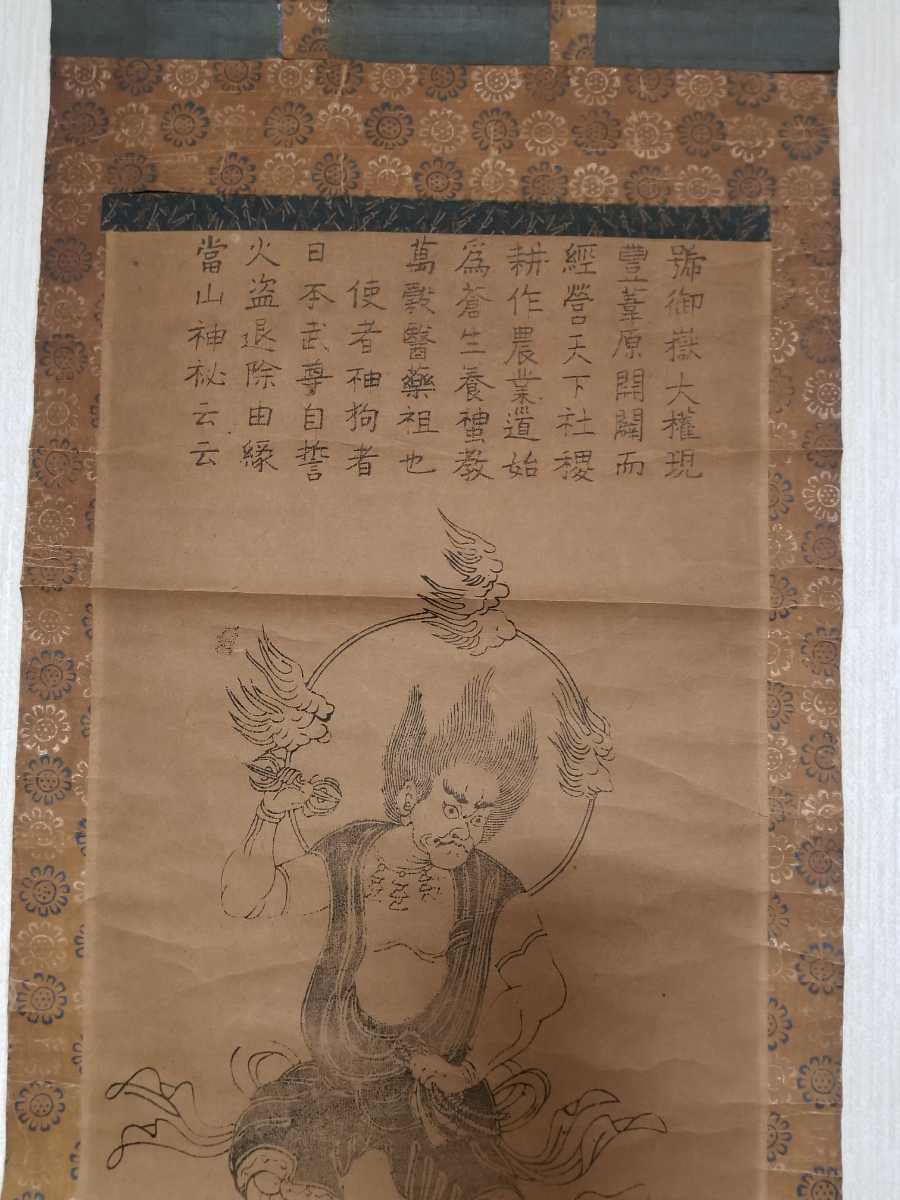 號御嶽大權現
豐葦原開闢而
經營天下社稷
耕作農業道始
為蒼生養蚕教
萬獸醫藥祖也
使者神狗者
日本武尊自誓
火盗退除由緣
當山神秘云云